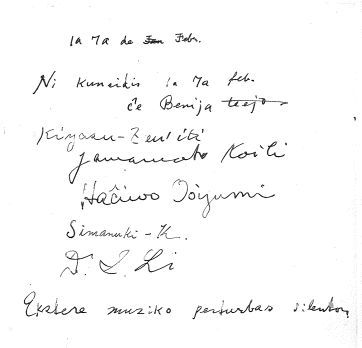 la 7a de Jan Febr.
Ni kunsidis la 7a feb.
ĉe Benija teejo
Kiyasu-Zen'iti
Yamamoto Koiti
Haĉiwo Ooizumi
Simanuki-K.
D. S. Li
Ekstere muziko perturbas silenton